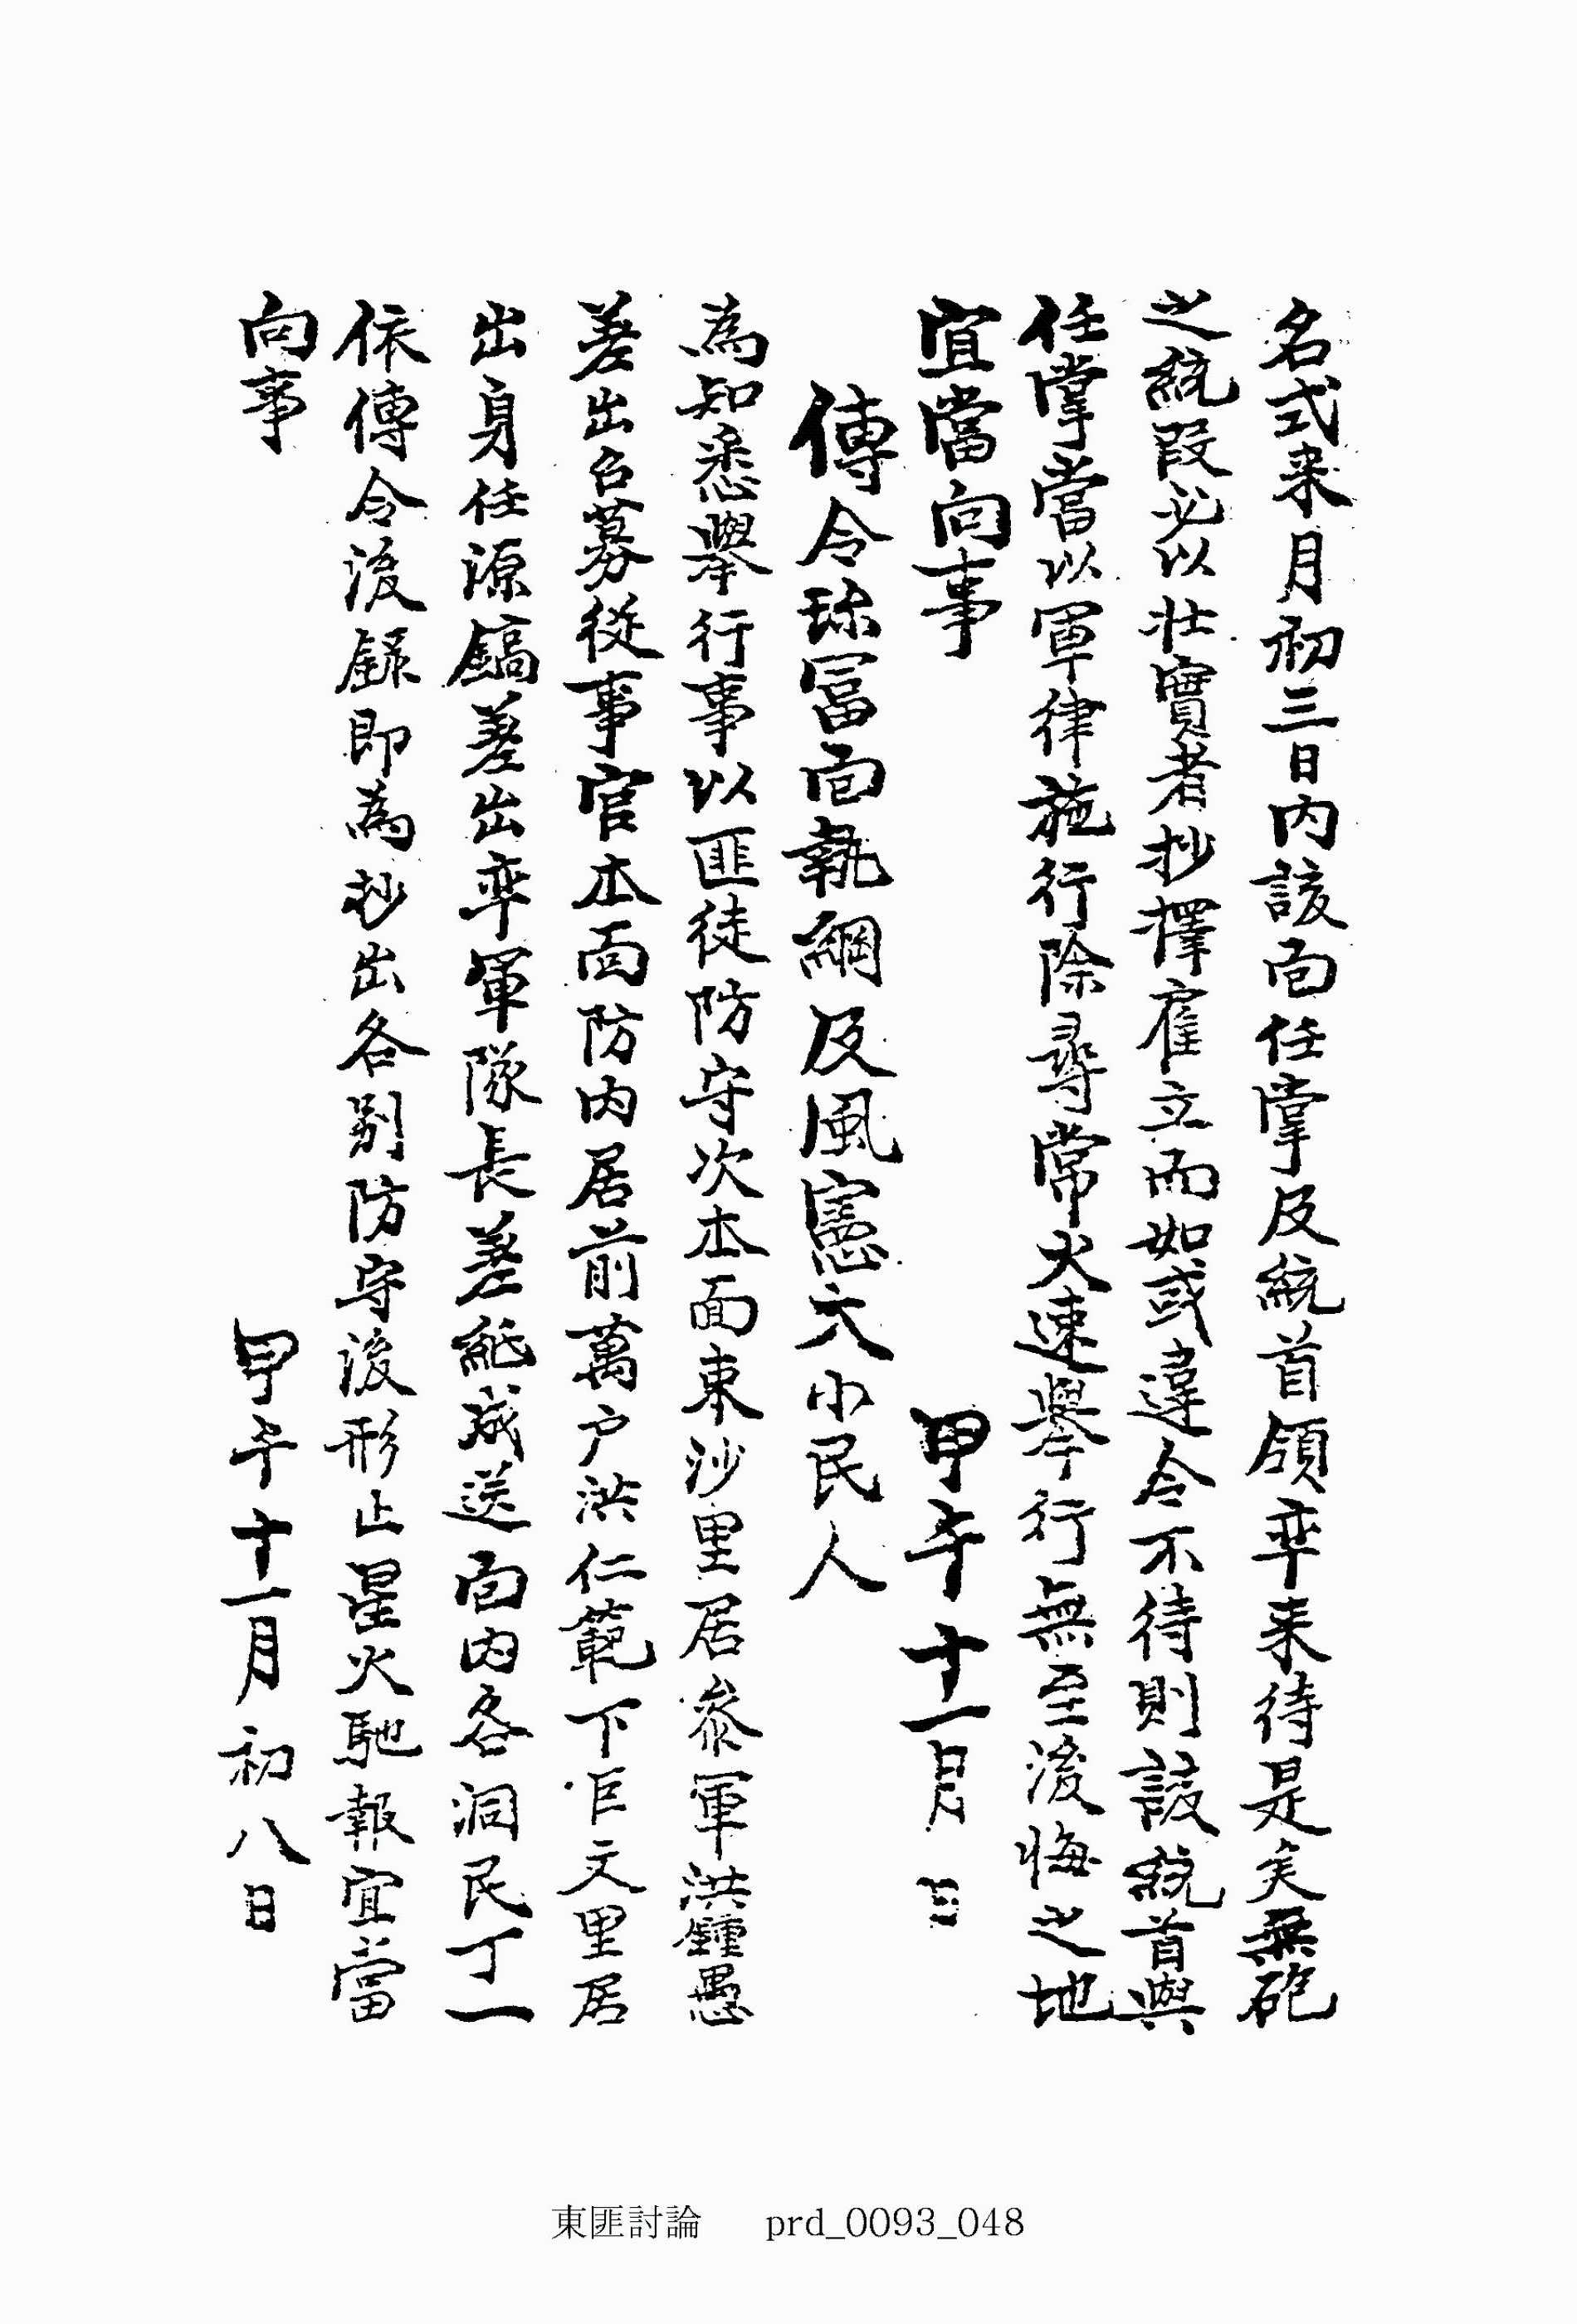 名式来月初三日內該面任掌及統首領率来待是矣無砲
之統段必以壯實者抄擇雇立而如或違令不待則該統首與
任掌當以軍律施行除尋常火速擧行無至後悔之地
宜當向事　甲午十一月　日
傳令珎富面執綱及風憲大小民人
為知悉擧行事以匪徒防守次本面東沙里居參軍洪鍾愚
差出召募從事官本面防內居前萬户洪仁範下巨文里居
出身任源鎬差出率軍隊長差帋成送面內各洞民丁一
依傳令後錄即為抄出各別防守後形止星火馳報宜當
向事　甲午十一月初八日
東匪討論 prd_0093_048